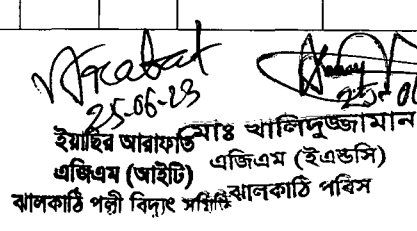 25-06-23
ইয়াছির আরাফাত
এজিএম (আইটি)
ঝালকাঠি পল্লী বিদ্যুৎ সমিতি
মোঃ খালিদুজ্জামান
এজিএম (ইএন্ডসি)
ঝালকাঠি পবিস